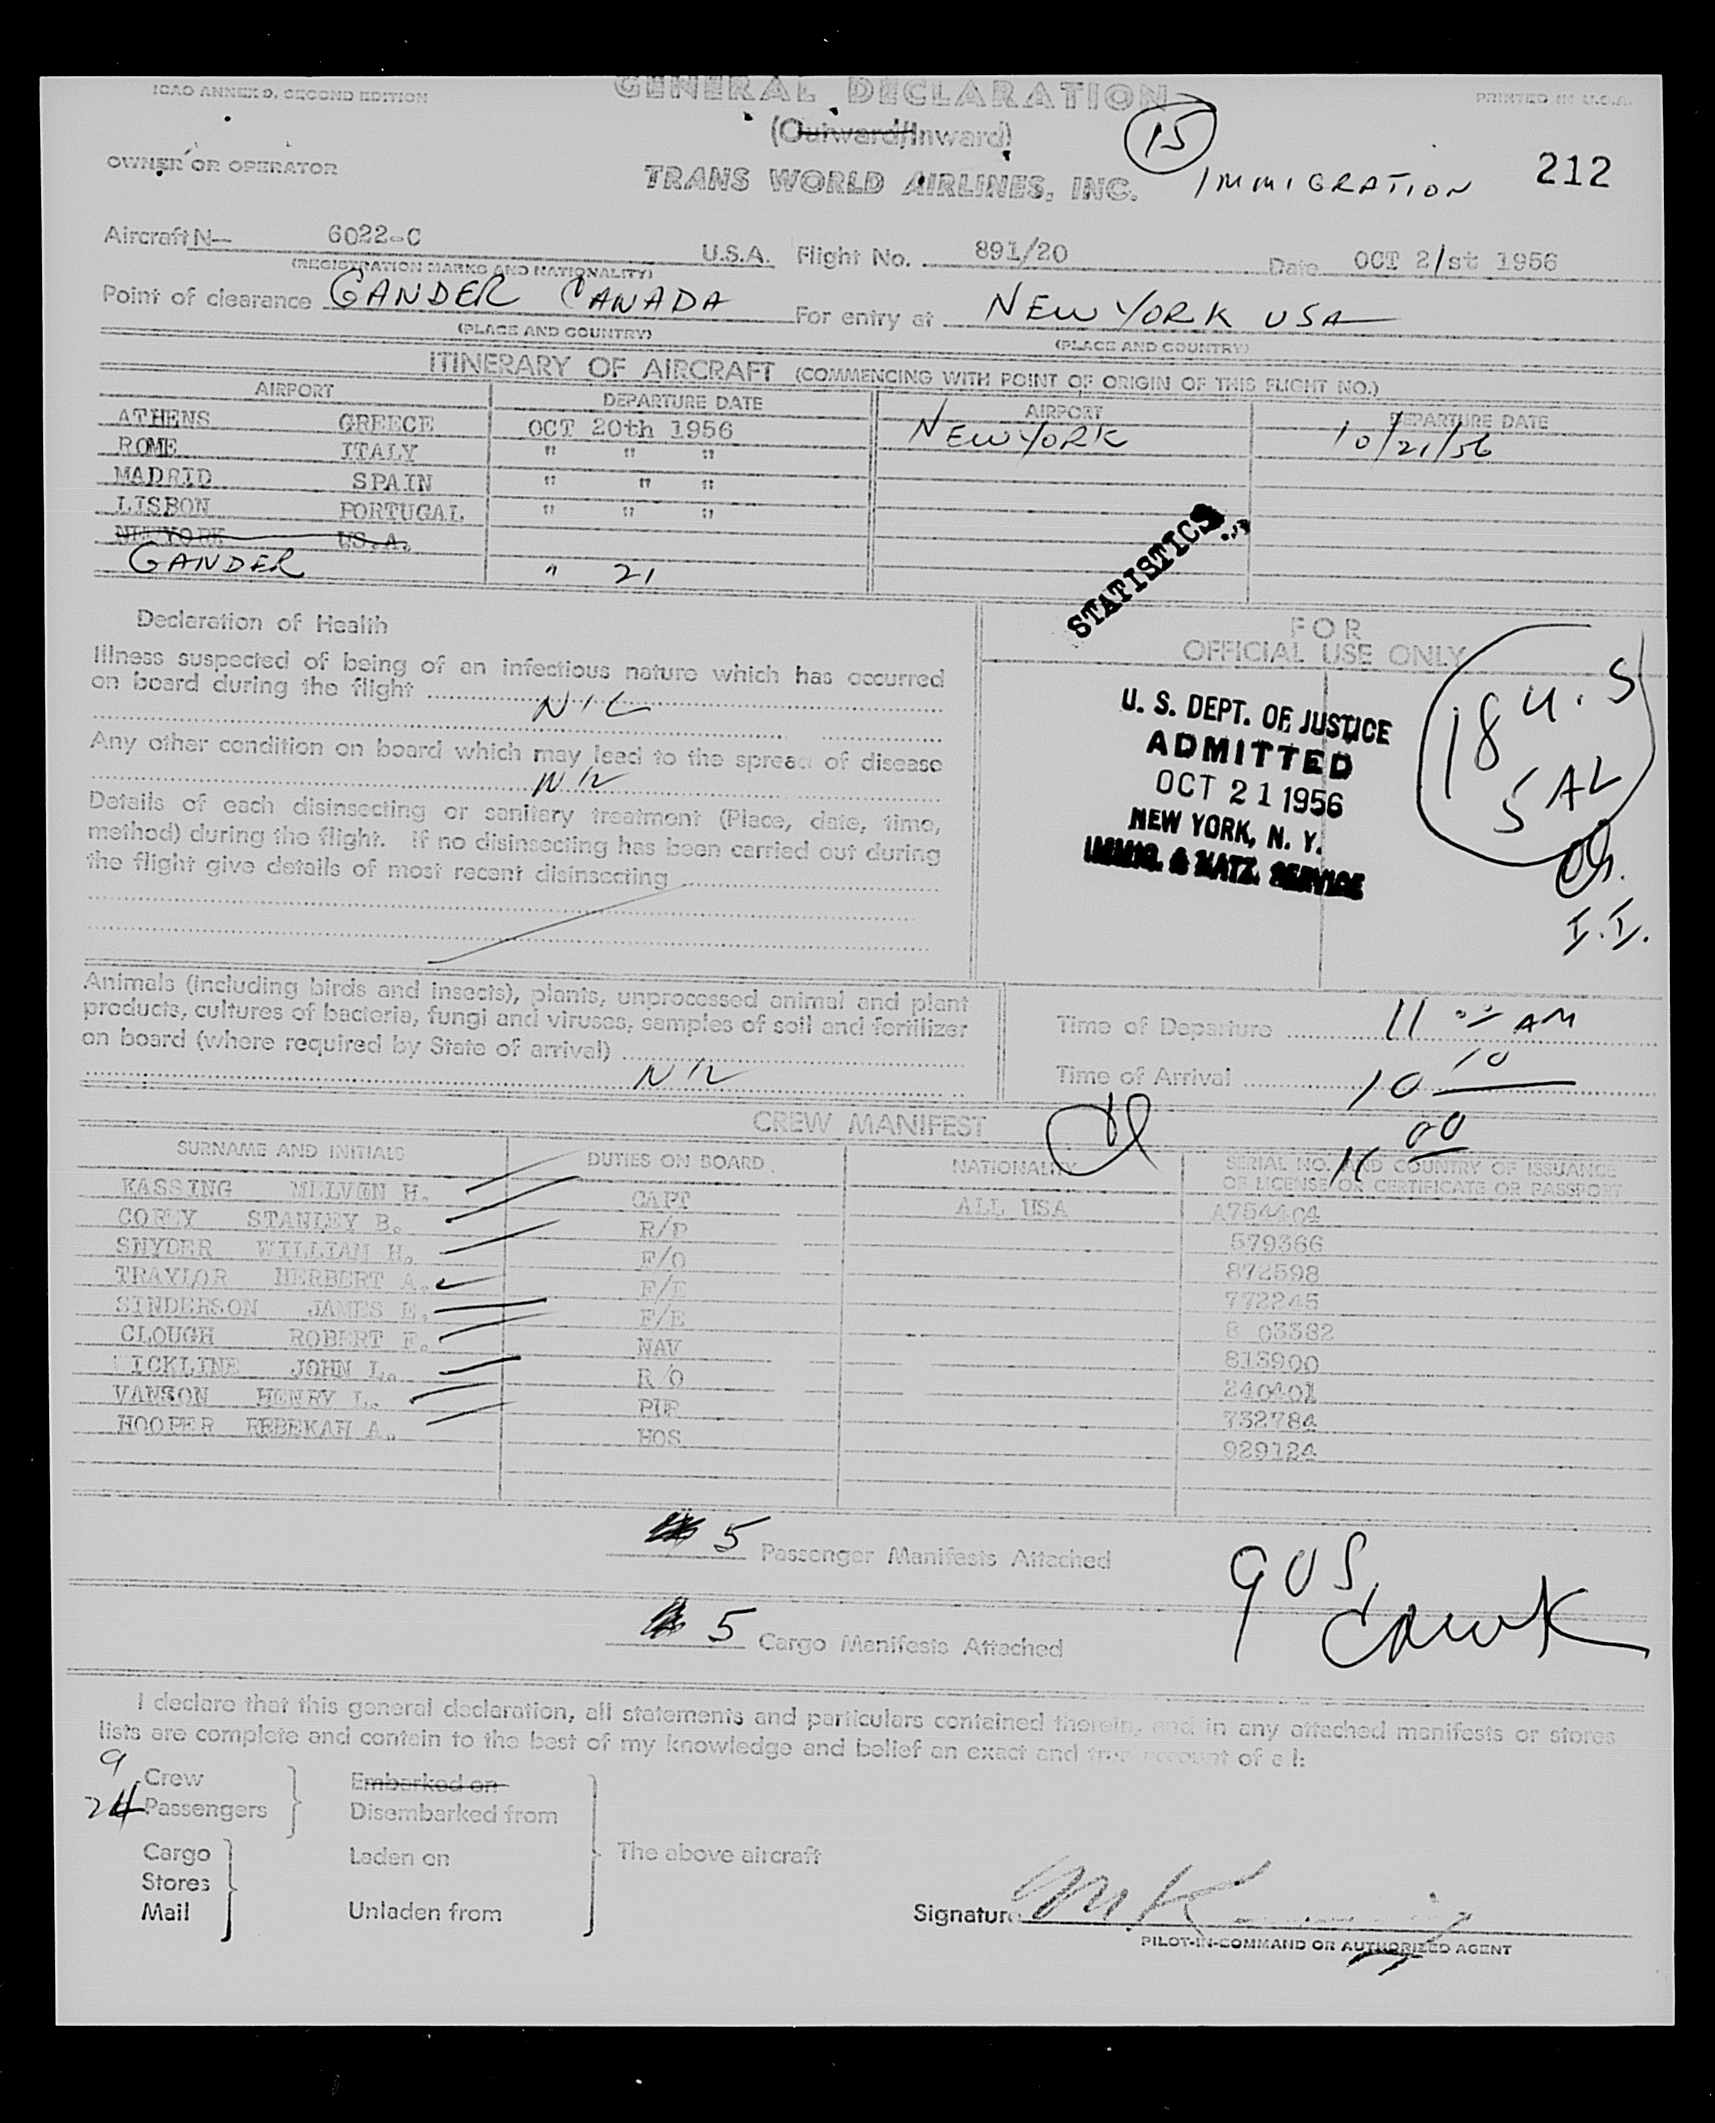 ICAO ANNEX 9, SECOND EDITION
GENERAL DECLARATION
PRINTED IN U.S.A.
(Outward/Inward)
15
OWNER OR OPERATOR
TRANS WORLD AIRLINES, INC.
IMMIGRATION
212
Aircraft N- 6022-C U.S.A. Flight No. 891/20 Date OCT 21st 1956
(REGISTRATION MARKS AND NATIONALITY)
Point of clearance GANDER CANADA For entry at NEW YORK USA
(PLACE AND COUNTRY) (PLACE AND COUNTRY)
ITINERARY OF AIRCRAFT (COMMENCING WITH POINT OF ORIGIN OF THIS FLIGHT NO.)
AIRPORT DEPARTURE DATE AIRPORT DEPARTURE DATE
ATHENS GREECE OCT 20th 1956 NEW YORK 10/21/56
ROME ITALY " " "
MADRID SPAIN " " "
LISBON PORTUGAL " " "
NEW YORK US.A.
GANDER " 21
STATISTICS
Declaration of Health
Illness suspected of being of an infectious nature which has occurred
on board during the flight
NIL
Any other condition on board which may lead to the spread of disease
NIL
Details of each disinsecting or sanitary treatment (Place, date, time,
method) during the flight. If no disinsecting has been carried out during
the flight give details of most recent disinsecting
FOR
OFFICIAL USE ONLY
U. S. DEPT. OF JUSTICE
ADMITTED
OCT 21 1956
NEW YORK, N. Y.
IMMIG. & NATZ. SERVICE
18 U.S
5 AL
I.I.
Animals (including birds and insects), plants, unprocessed animal and plant
products, cultures of bacteria, fungi and viruses, samples of soil and fertilizer
on board (where required by State of arrival)
NIL
Time of Departure 11 AM
Time of Arrival 10 10
00
CREW MANIFEST
SURNAME AND INITIALS DUTIES ON BOARD NATIONALITY SERIAL NO. AND COUNTRY OF ISSUANCE
OF LICENSE OR CERTIFICATE OR PASSPORT
KASSING MELVEN H. CAPT ALL USA A754404
COREY STANLEY B. R/P 579366
SNYDER WILLIAM H. F/O 872598
TRAYLOR HERBERT A. F/E 772245
SINDERSON JAMES E. F/E 03382
CLOUGH ROBERT F. NAV 813900
ICKLINE JOHN L. R/O 240401
VANSON HENRY L. PUR 732784
HOOPER REBEKAH A. HOS 929124
5 Passenger Manifests Attached
5 Cargo Manifests Attached
9 US
CREW
I declare that this general declaration, all statements and particulars contained therein, and in any attached manifests or stores
lists are complete and contain to the best of my knowledge and belief an exact and true account of all:
9 Crew
24 Passengers
Embarked on
Disembarked from
Cargo
Stores
Mail
Laden on
Unladen from
The above aircraft
Signature
PILOT-IN-COMMAND OR AUTHORIZED AGENT